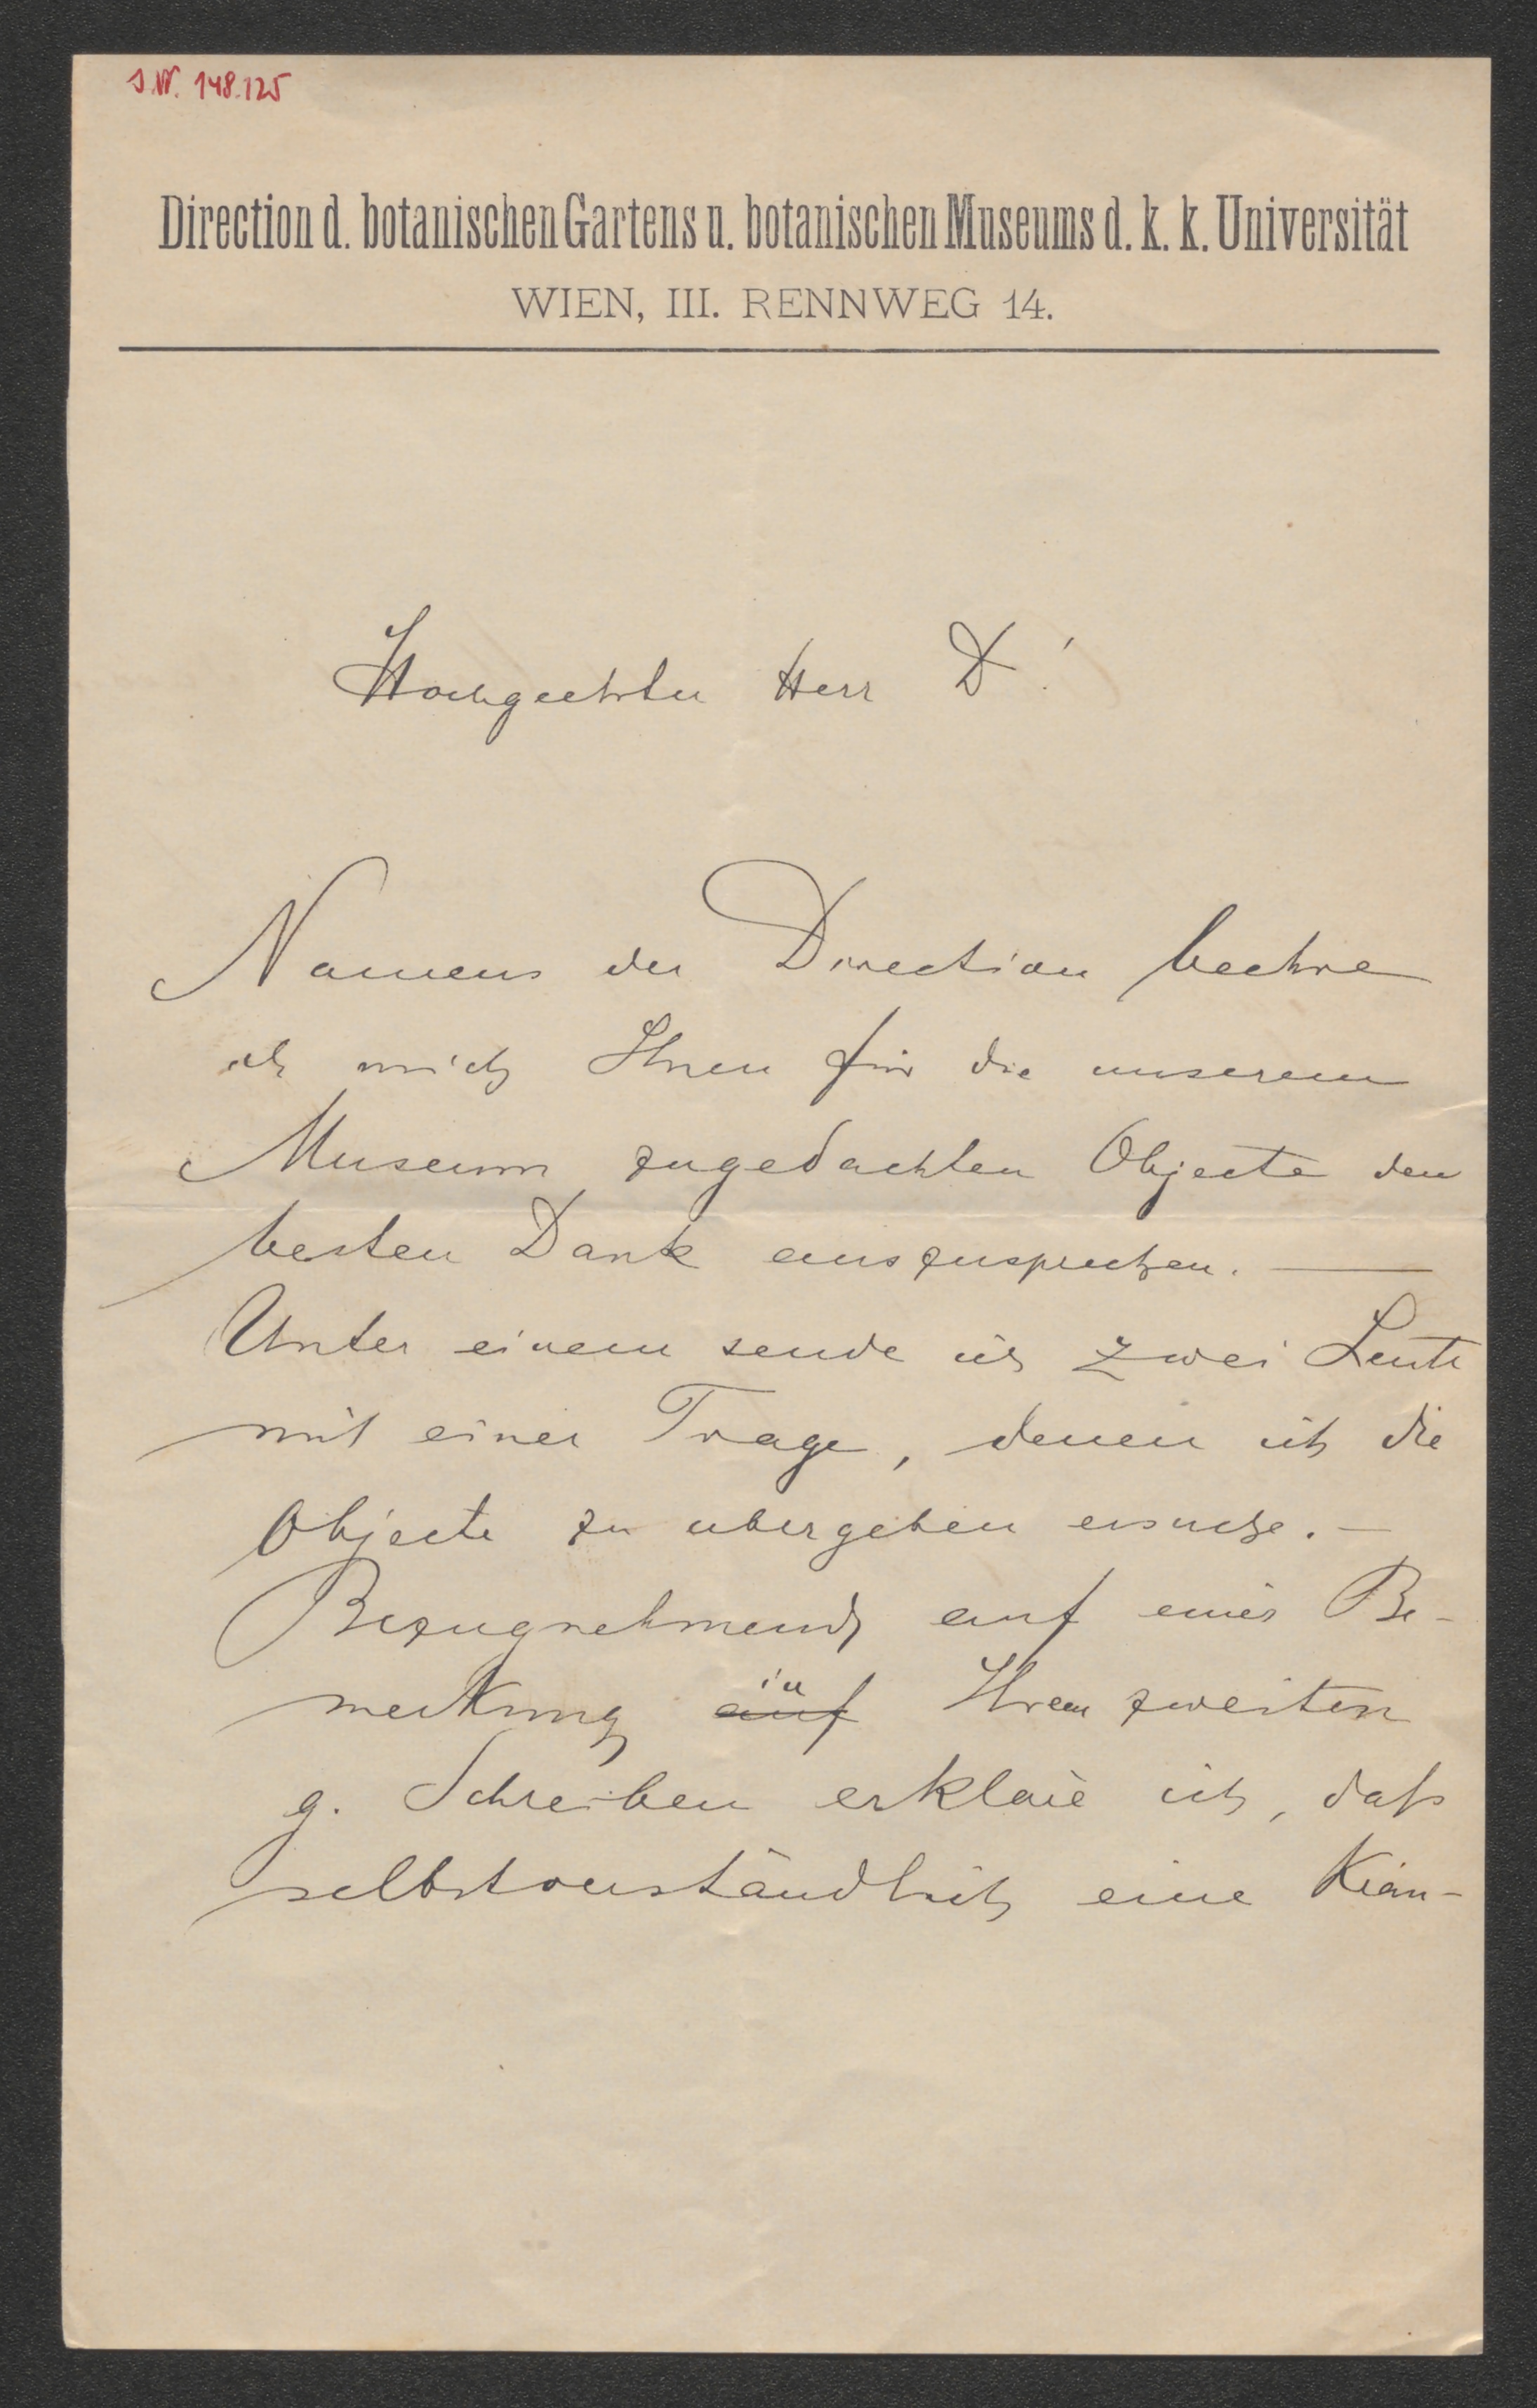 I.N. 148.125
Direction d. botanischen Gartens u. botanischen Museums d. k. k. Universität
WIEN, III. RENNWEG 14.
Hochgeehrter Herr Dr!
Namens der Direction beehre
ich mich Ihnen für die unserem
Museum zugedachten Objecte den
besten Dank auszusprechen. —
Unter einem sende ich zwei Leute
mit einer Trage, denen ich die
Objecte zu übergeben ersuche. —
Bezugnehmend auf einer Be-
merkung auf in Ihrem zweiten
g. Schreiben erkläre ich, daß
selbstverständlich eine